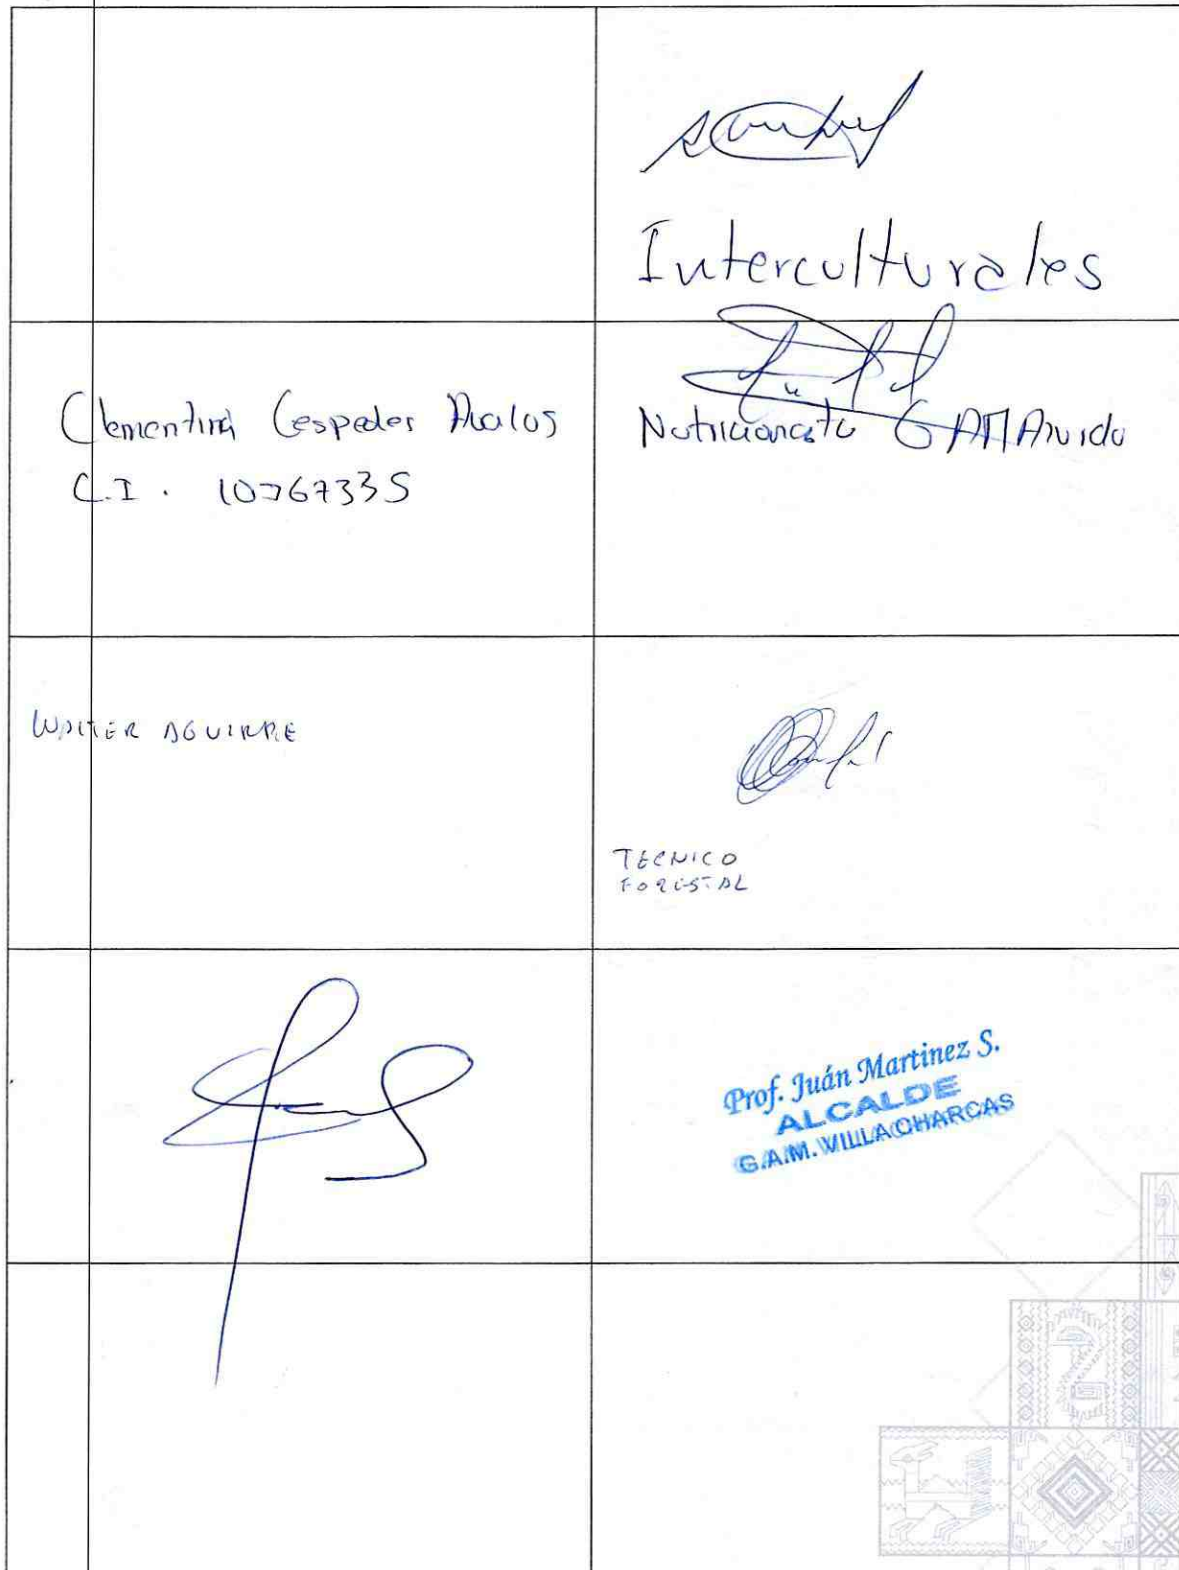 Interculturales
Clementina Cespedes Avalos
C.I. 10767335
Nutricionista GAM Azurduy
WALTER AGUIRRE
TECNICO
FORESTAL
Prof. Juán Martinez S.
ALCALDE
G.A.M. VILLA CHARCAS